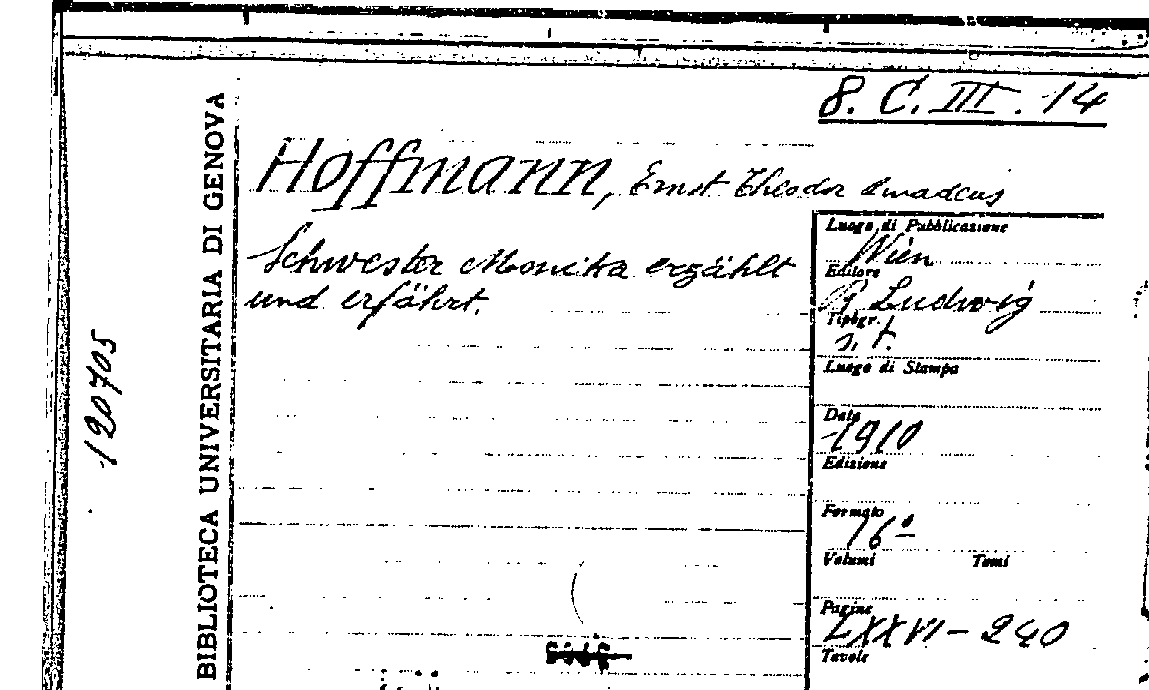 8. C. III. 14
BIBLIOTECA UNIVERSITARIA DI GENOVA
120705
Hoffmann, Ernst Theodor Amadeus
Schwester Monika erzählt
und erfährt.
Luogo di Pubblicazione
Wien
Editore
R. Ludwig
Tipogr.
s. t.
Luogo di Stampa
Data
1910
Edizione
Formato
16º
Volumi Tomi
Pagine
LXXVI - 240
Tavole